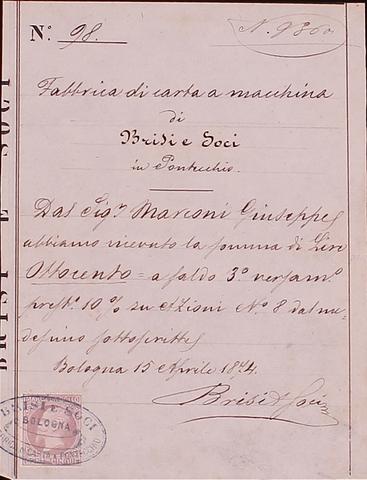 N.° 98.
N. 9360
Fabbrica di carta a macchina
di
Brisi e Soci
in Pontecchio.
Dal Sig.r Marconi Giuseppe
abbiamo ricevuto la somma di Lire
Ottocento = a saldo 3.° versam.°
10% su Azioni N.° 8 dal me-
desimo sottoscritte
Bologna 15 Aprile 1874.
Brisi e Soci
BRISI E SOCI
BOLOGNA
BRISI E SOCI